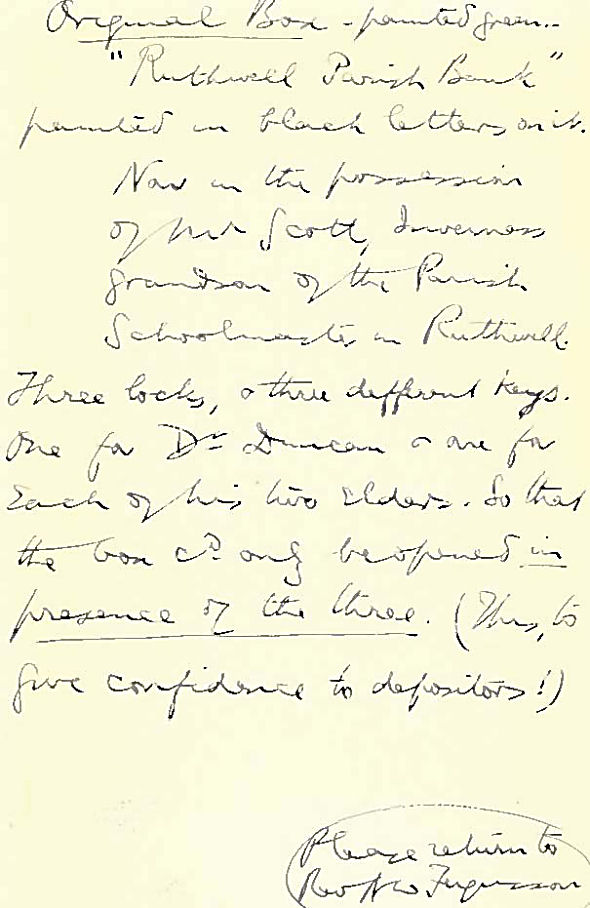 Original Box - painted green.-
"Ruthwell Parish Bank"
painted in black letters on it.
Now in the possession
of Mr Scott, Inverness
grandson of the Parish
Schoolmaster in Ruthwell.
Three locks, & three different keys.
One for Dr Duncan & one for
Each of his two Elders. So that
the box cd only be opened in
presence of the three. (This, to
give confidence to depositors!)
Please return to
Rev Fergusson